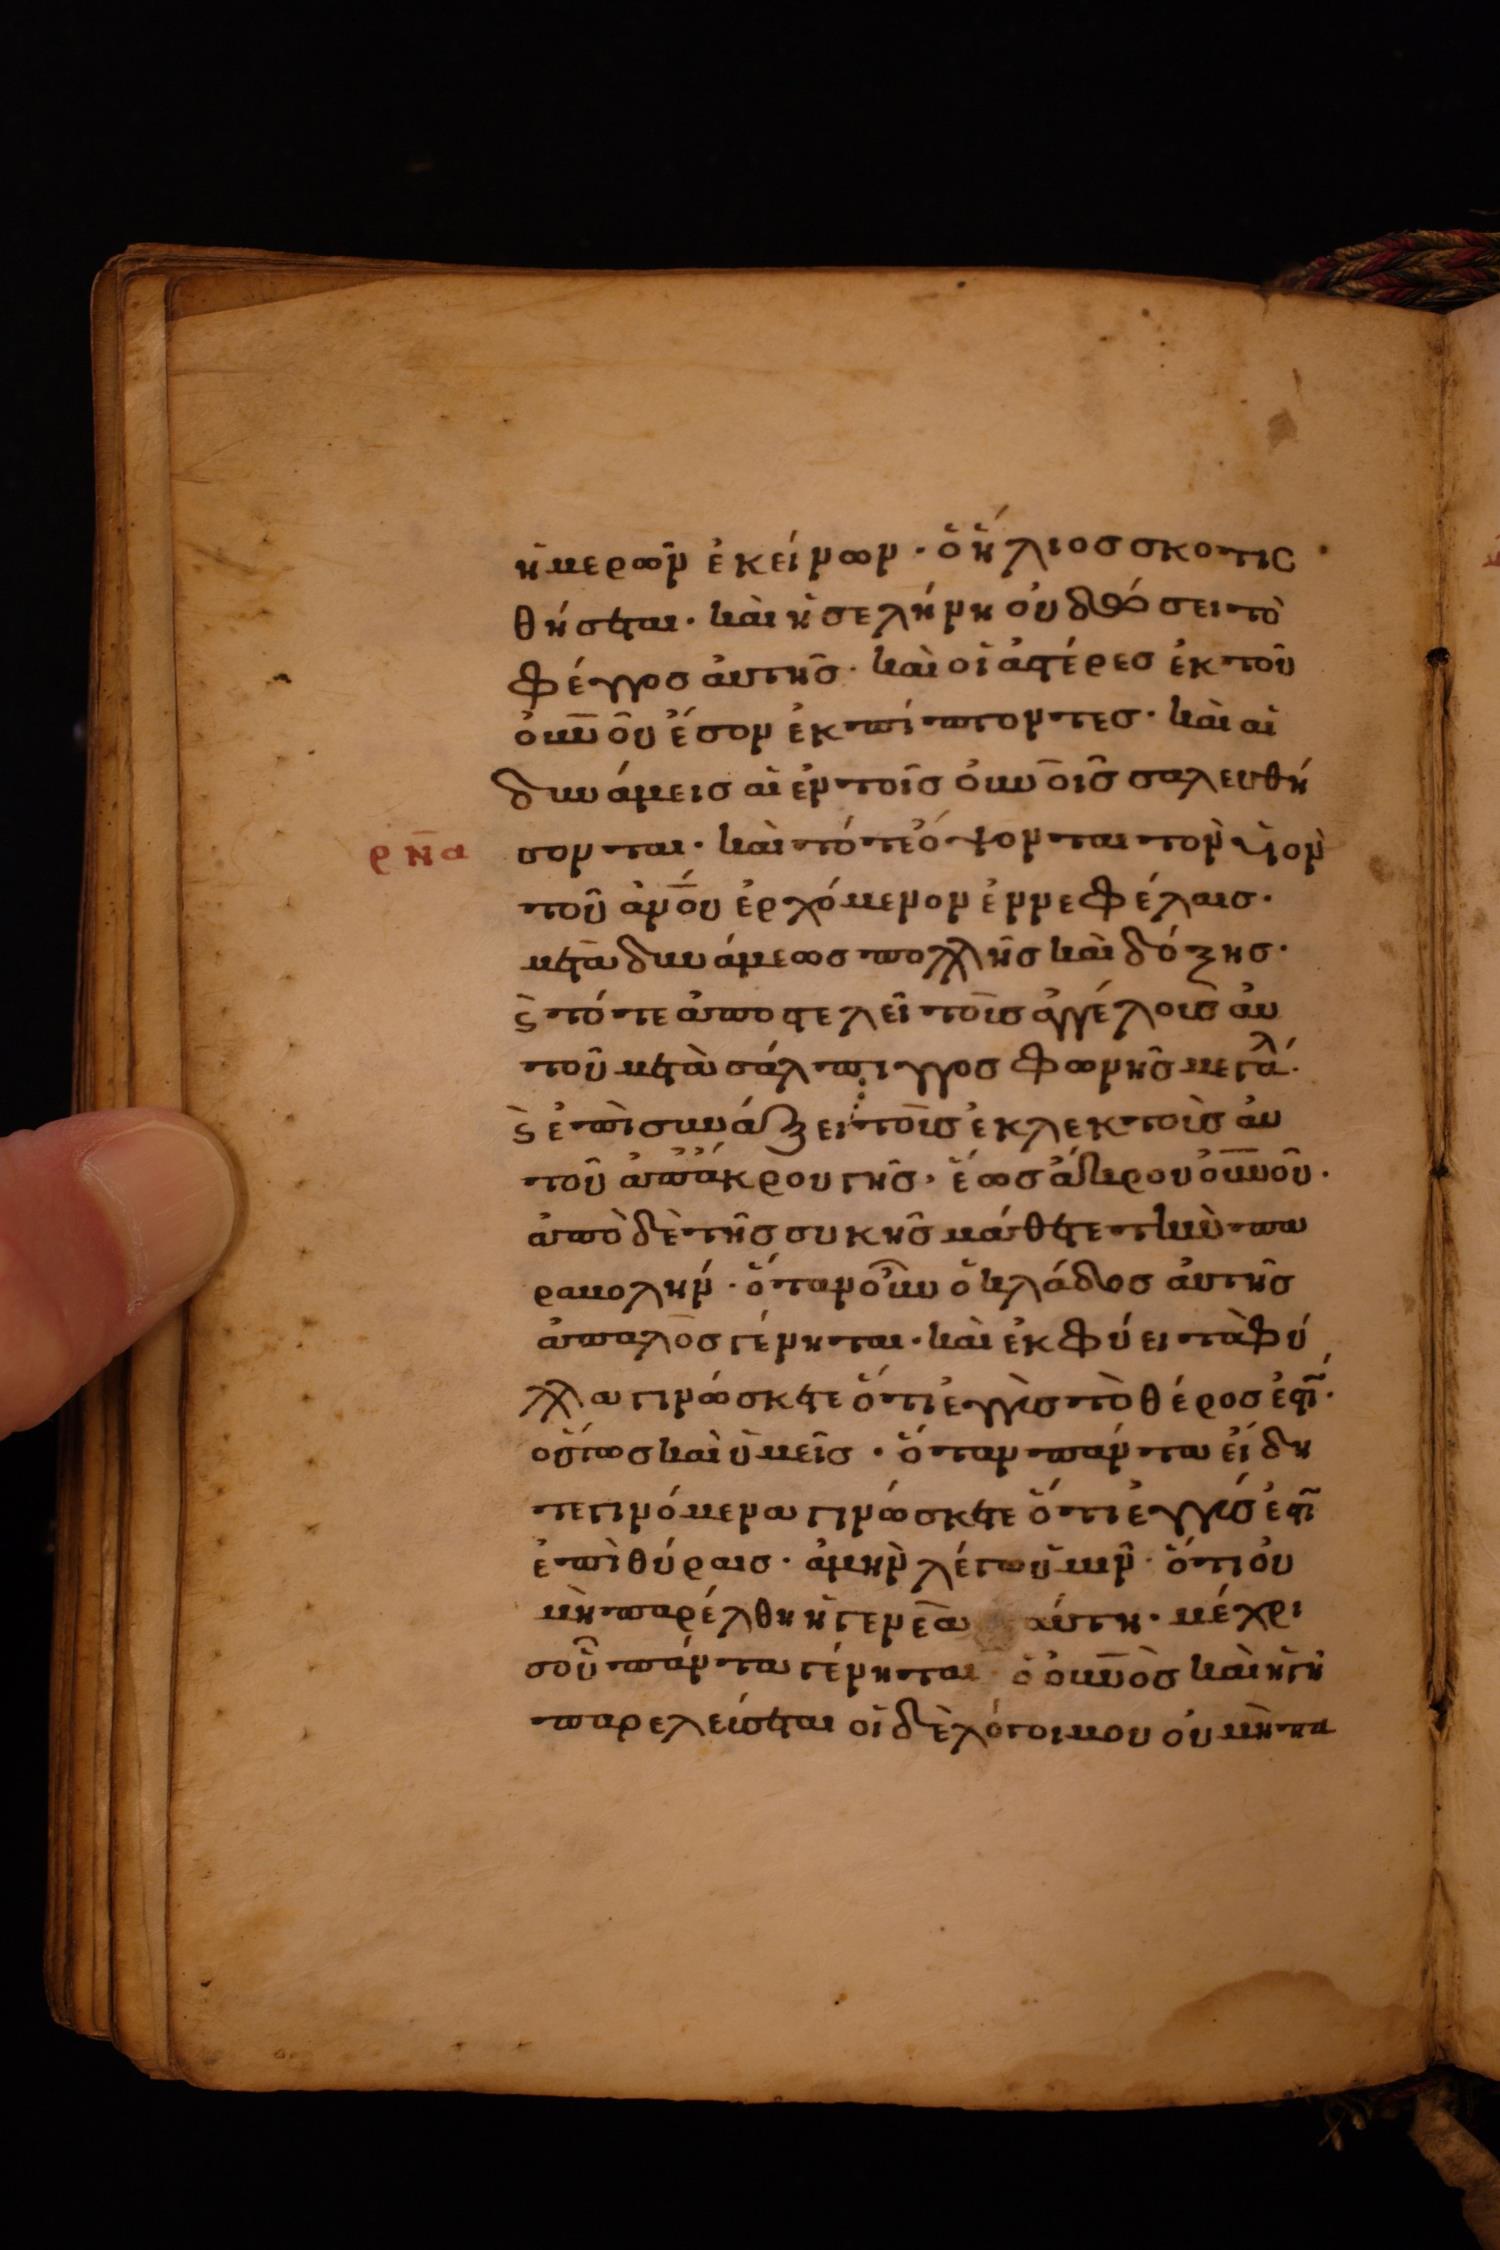 ἡμερῶν ἐκείνων · ὁ ἥλιος σκοτισ
θήσεται · καὶ ἡ σελήνη οὐ δώσει τὸ
φέγγος αὐτῆς · καὶ οἱ ἀστέρες ἐκ τοῦ
ου̅νο̅υ ἔσον ἐκπίπτοντες · καὶ αἱ
δυνάμεις αἱ ἐν τοῖς ου̅νο̅ις σαλευθή
ρν̅α σονται · καὶ τότε ὄψονται τὸν υἱὸν
τοῦ ἀν̅ο̅υ ἐρχόμενον ἐν νεφέλαις ·
μετὰ δυνάμεως πολλῆς καὶ δόξης ·
ϛ̀ τότε ἀποστελεῖ τοῖς ἀγγέλοις αὐ
τοῦ μετὰ σάλπιγγος φωνῆς μεγάλ ·
ϛ̀ ἐπισυνάξει τοῖς ἐκλεκτοῖς αὐ
τοῦ ἀπάκρου γῆς · ἕως ἄκρου ου̅νο̅υ ·
ἀπὸ δὲ τῆς συκῆς μάθετε τὴν πα
ραβολήν · ὅταν οὖν ὁ κλάδος αὐτῆς
ἀπαλὸς γένηται · καὶ ἐκφύει τὰ φύ
λλα γινώσκετε ὅτι ἐγγὺς τὸ θέρος ἐστί ·
οὕτως καὶ ὑμεῖς · ὅταν πάντα εἴδη
τε γινόμενα γινώσκετε ὅτι ἐγγύς ἐστι
ἐπὶ θύραις · ἀμὴν λέγω ὑμῖν · ὅτι οὐ
μὴ παρέλθη ἡ γενεὰ αὕτη · μέχρι
σοῦ πάντα γένηται ὁ ου̅νο̅ς καὶ ἡ γῆ
παρελεύσεται οἱ δὲ λόγοι μου οὐ μὴ πα